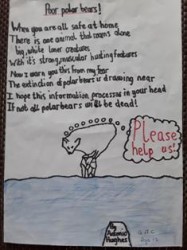 Poor polar bears!
When you are all safe at home,
There is one animal that roams alone
big, white loner creatures
With it's strong, muscular hunting features
Now I warn you this from my fear
The extinction of polar bears is drawing near
I hope this information processes in your head
If not all polar bears will be dead!
Please
help us!
By
Hughes